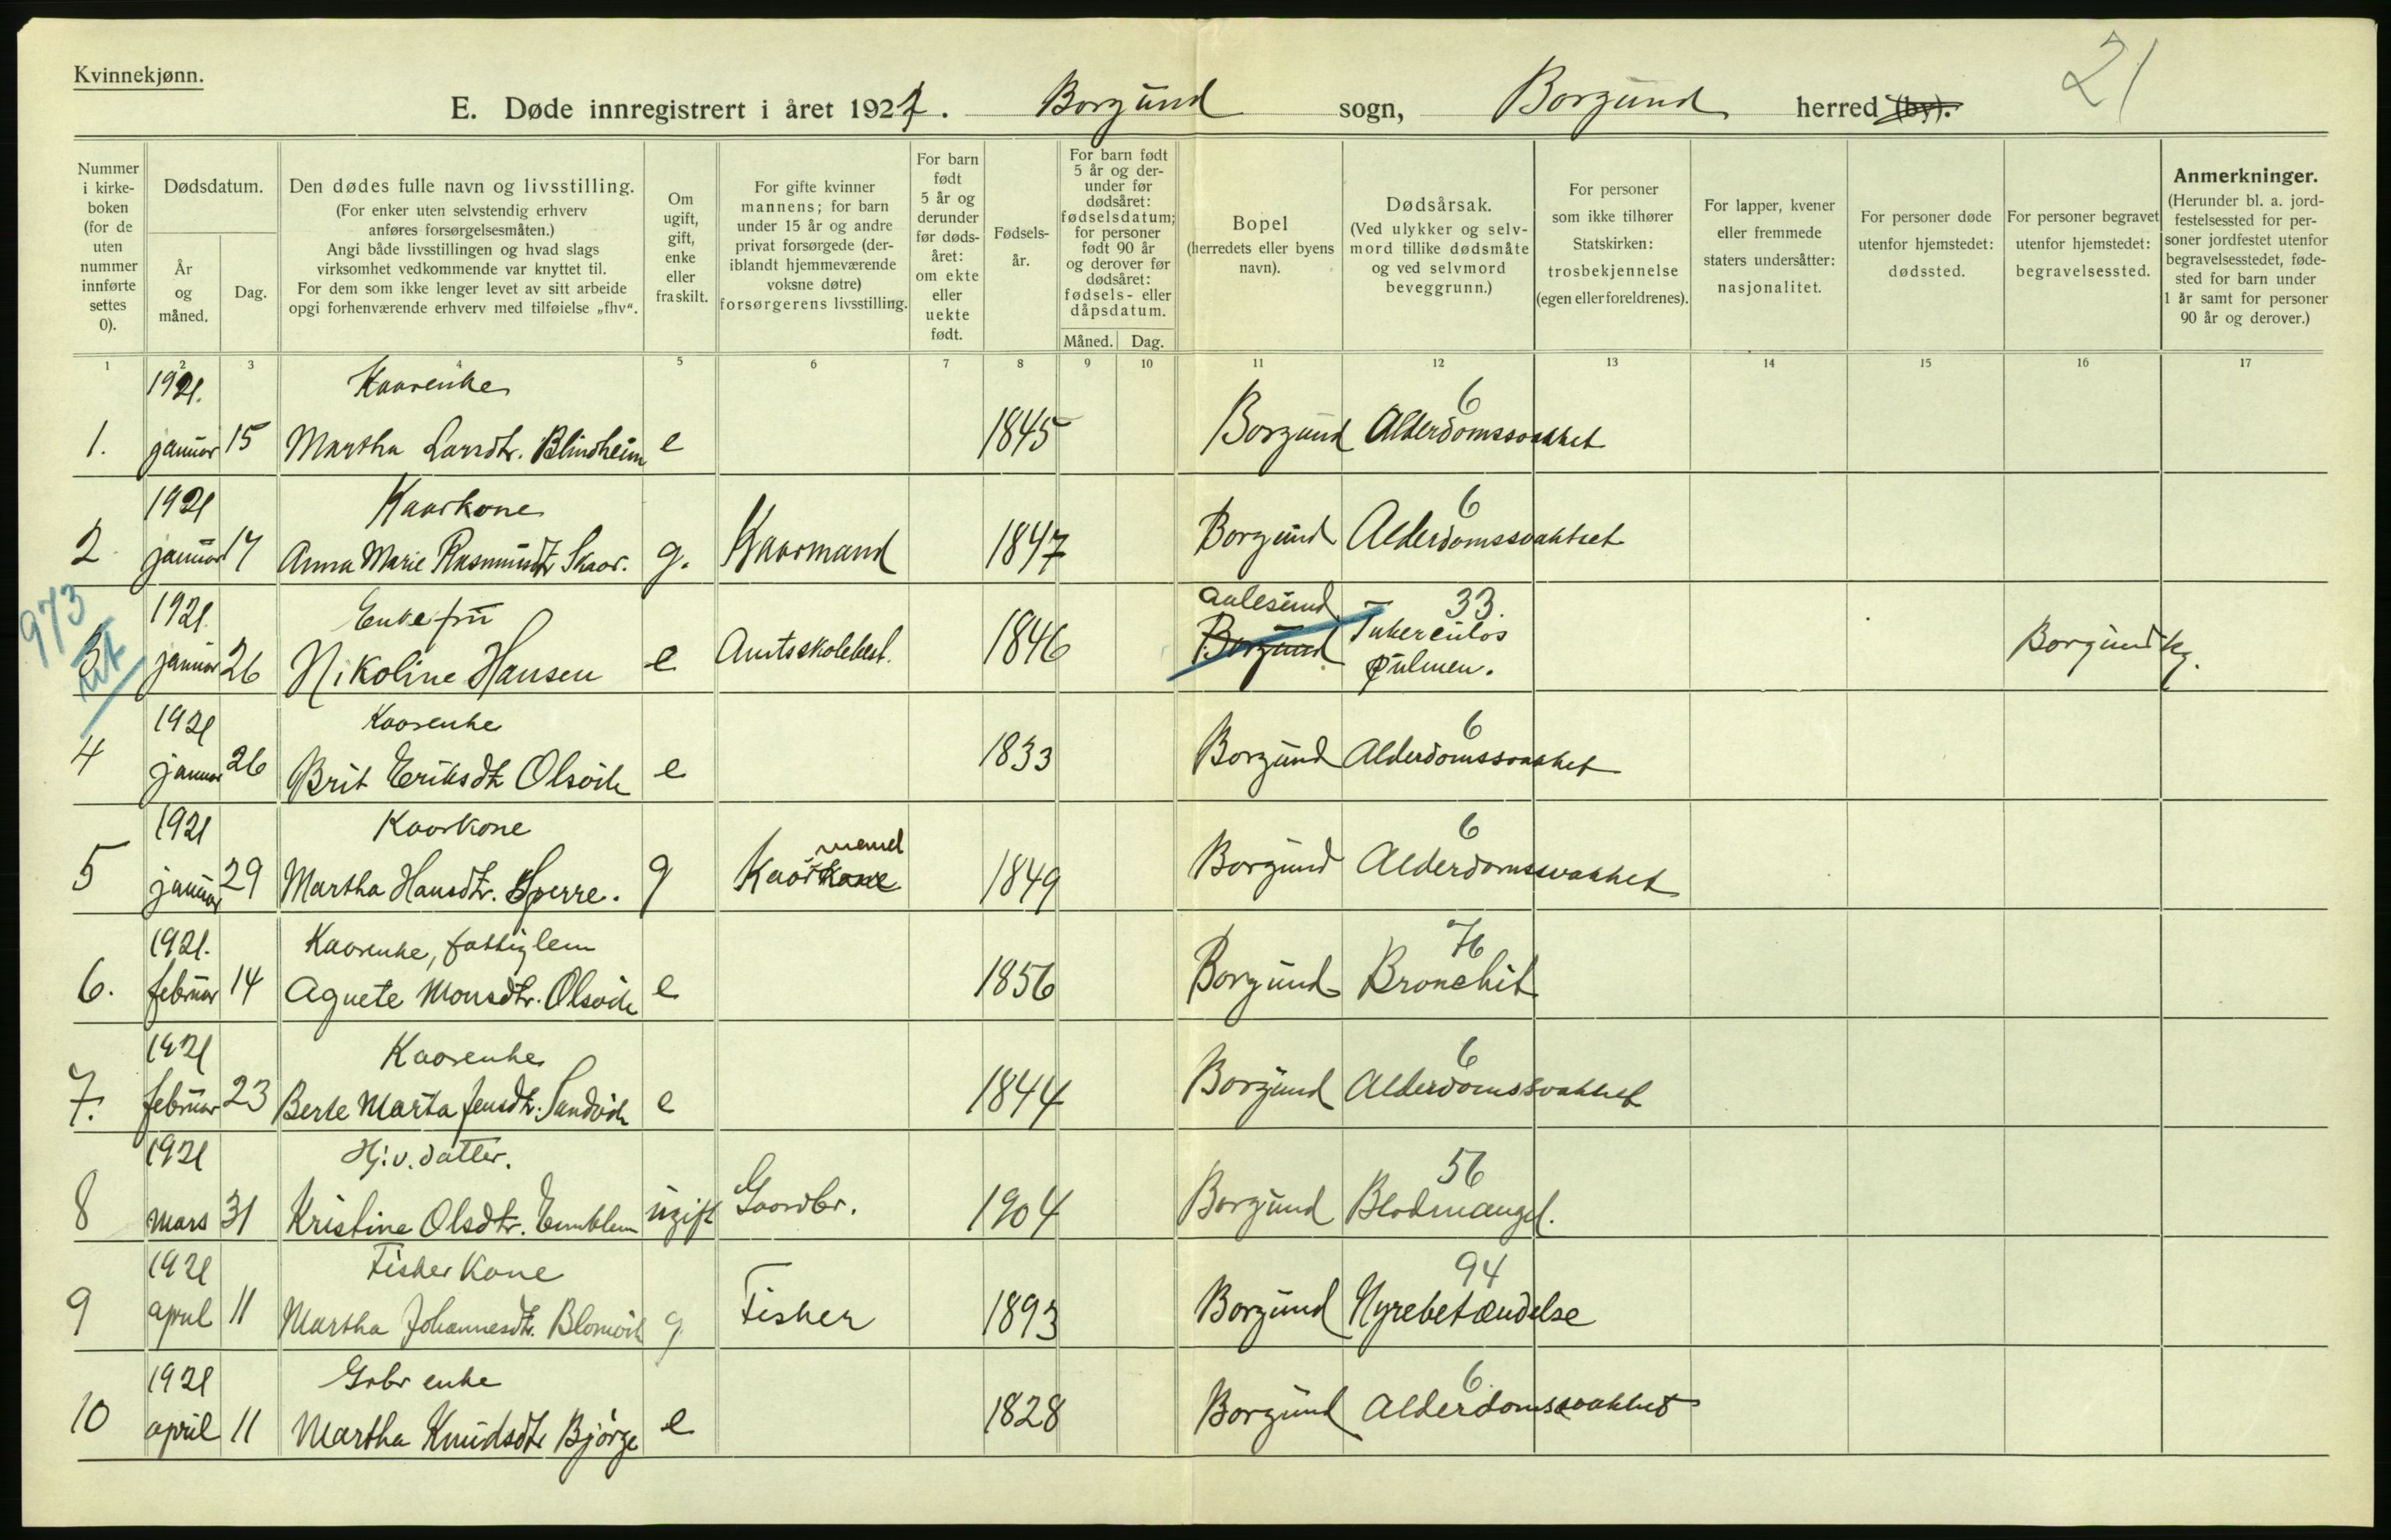 Kvinnekjønn.
21
E. Døde innregistrert i året 1921. Borgund sogn, Borgund herred (by).
Nummer i kirke-boken (for de uten nummer innførte settes 0).
Dødsdatum.
År og måned.
Dag.
Den dødes fulle navn og livsstilling.
(For enker uten selvstendig erhverv anføres forsørgelsesmåten.)
Angi både livsstillingen og hvad slags virksomhet vedkommende var knyttet til.
For dem som ikke lenger levet av sitt arbeide opgi forhenværende erhverv med tilføielse „fhv“.
Om ugift, gift, enke eller fraskilt.
For gifte kvinner mannens; for barn under 15 år og andre privat forsørgede (deriblandt hjemmeværende voksne døtre) forsørgerens livsstilling.
For barn født 5 år og derunder før dødsåret: om ekte eller uekte født.
Fødsels-år.
For barn født 5 år og der-under før dødsåret: fødselsdatum; for personer født 90 år og derover før dødsåret: fødsels- eller dåpsdatum.
Måned. Dag.
Bopel (herredets eller byens navn).
Dødsårsak.
(Ved ulykker og selv-mord tillike dødsmåte og ved selvmord beveggrunn.)
For personer som ikke tilhører Statskirken: trosbekjennelse (egen eller foreldrenes).
For lapper, kvener eller fremmede staters undersåtter: nasjonalitet.
For personer døde utenfor hjemstedet: dødssted.
For personer begravet utenfor hjemstedet: begravelsessted.
Anmerkninger.
(Herunder bl. a. jord-festelsessted for per-soner jordfestet utenfor begravelsesstedet, føde-sted for barn under 1 år samt for personer 90 år og derover.)
1 2 3 4 5 6 7 8 9 10 11 12 13 14 15 16 17
1921. Kaarenke 6
1. januar 15 Martha Larsdtr. Blindheim e 1845 Borgund Alderdomssvakhet
1921 Kaarkone 6
2 januar 17 Anna Marie Rasmusdtr Skaar. g. Kaarmand 1847 Borgund Alderdomssvakhet
973
1921. Enkefru Aalesund 33.
3 januar 26 Nikoline Hansen e Amtsskolebest. 1846 Borgund Tuberculos pulmon. Borgund kg.
1921 Kaarenke 6
4 januar 26 Brit Eriksdtr Olsvik e 1833 Borgund Alderdomssvakhet
1921 Kaarkone mand 6
5 januar 29 Martha Hansdtr. Sperre. g Kaarkone 1849 Borgund Alderdomssvakhet
1921. Kaarenke, fattiglem 76
6. februar 14 Agnete Monsdtr. Olsvik e 1856 Borgund Bronchit
1921 Kaarenke 6
7. februar 23 Berte Marta Jensdtr. Sandvik e 1844 Borgund Alderdomssvakhet
1921 Hj.v. datter. 56
8 mars 31 Kristine Olsdtr. Emblem ugift Gaardbr. 1904 Borgund Blodmangel.
1921 Fisker kone 94
9 april 11 Martha Johannesdtr. Blomvik g Fisker 1893 Borgund Nyrebetændelse
1921 Gbr enke 6
10 april 11 Martha Knudsdtr Bjørge e 1828 Borgund Alderdomssvakhet